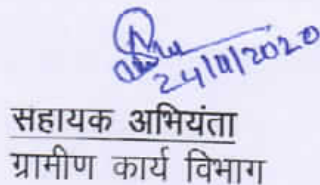 24/11/2020
सहायक अभियंता
ग्रामीण कार्य विभाग